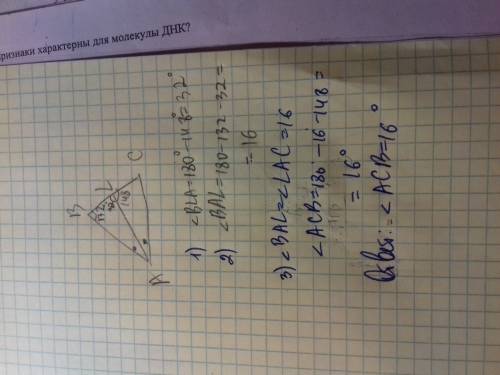 признаки характерны для молекулы ДНК?
B
132
L
148
C
A
1) <BLA=180°-148°=32°
2) <BAL=180-132-32=
=16
3) <BAL=<LAC=16
<ACB=180°-16-148=
=16°
Ответ: <ACB=16°